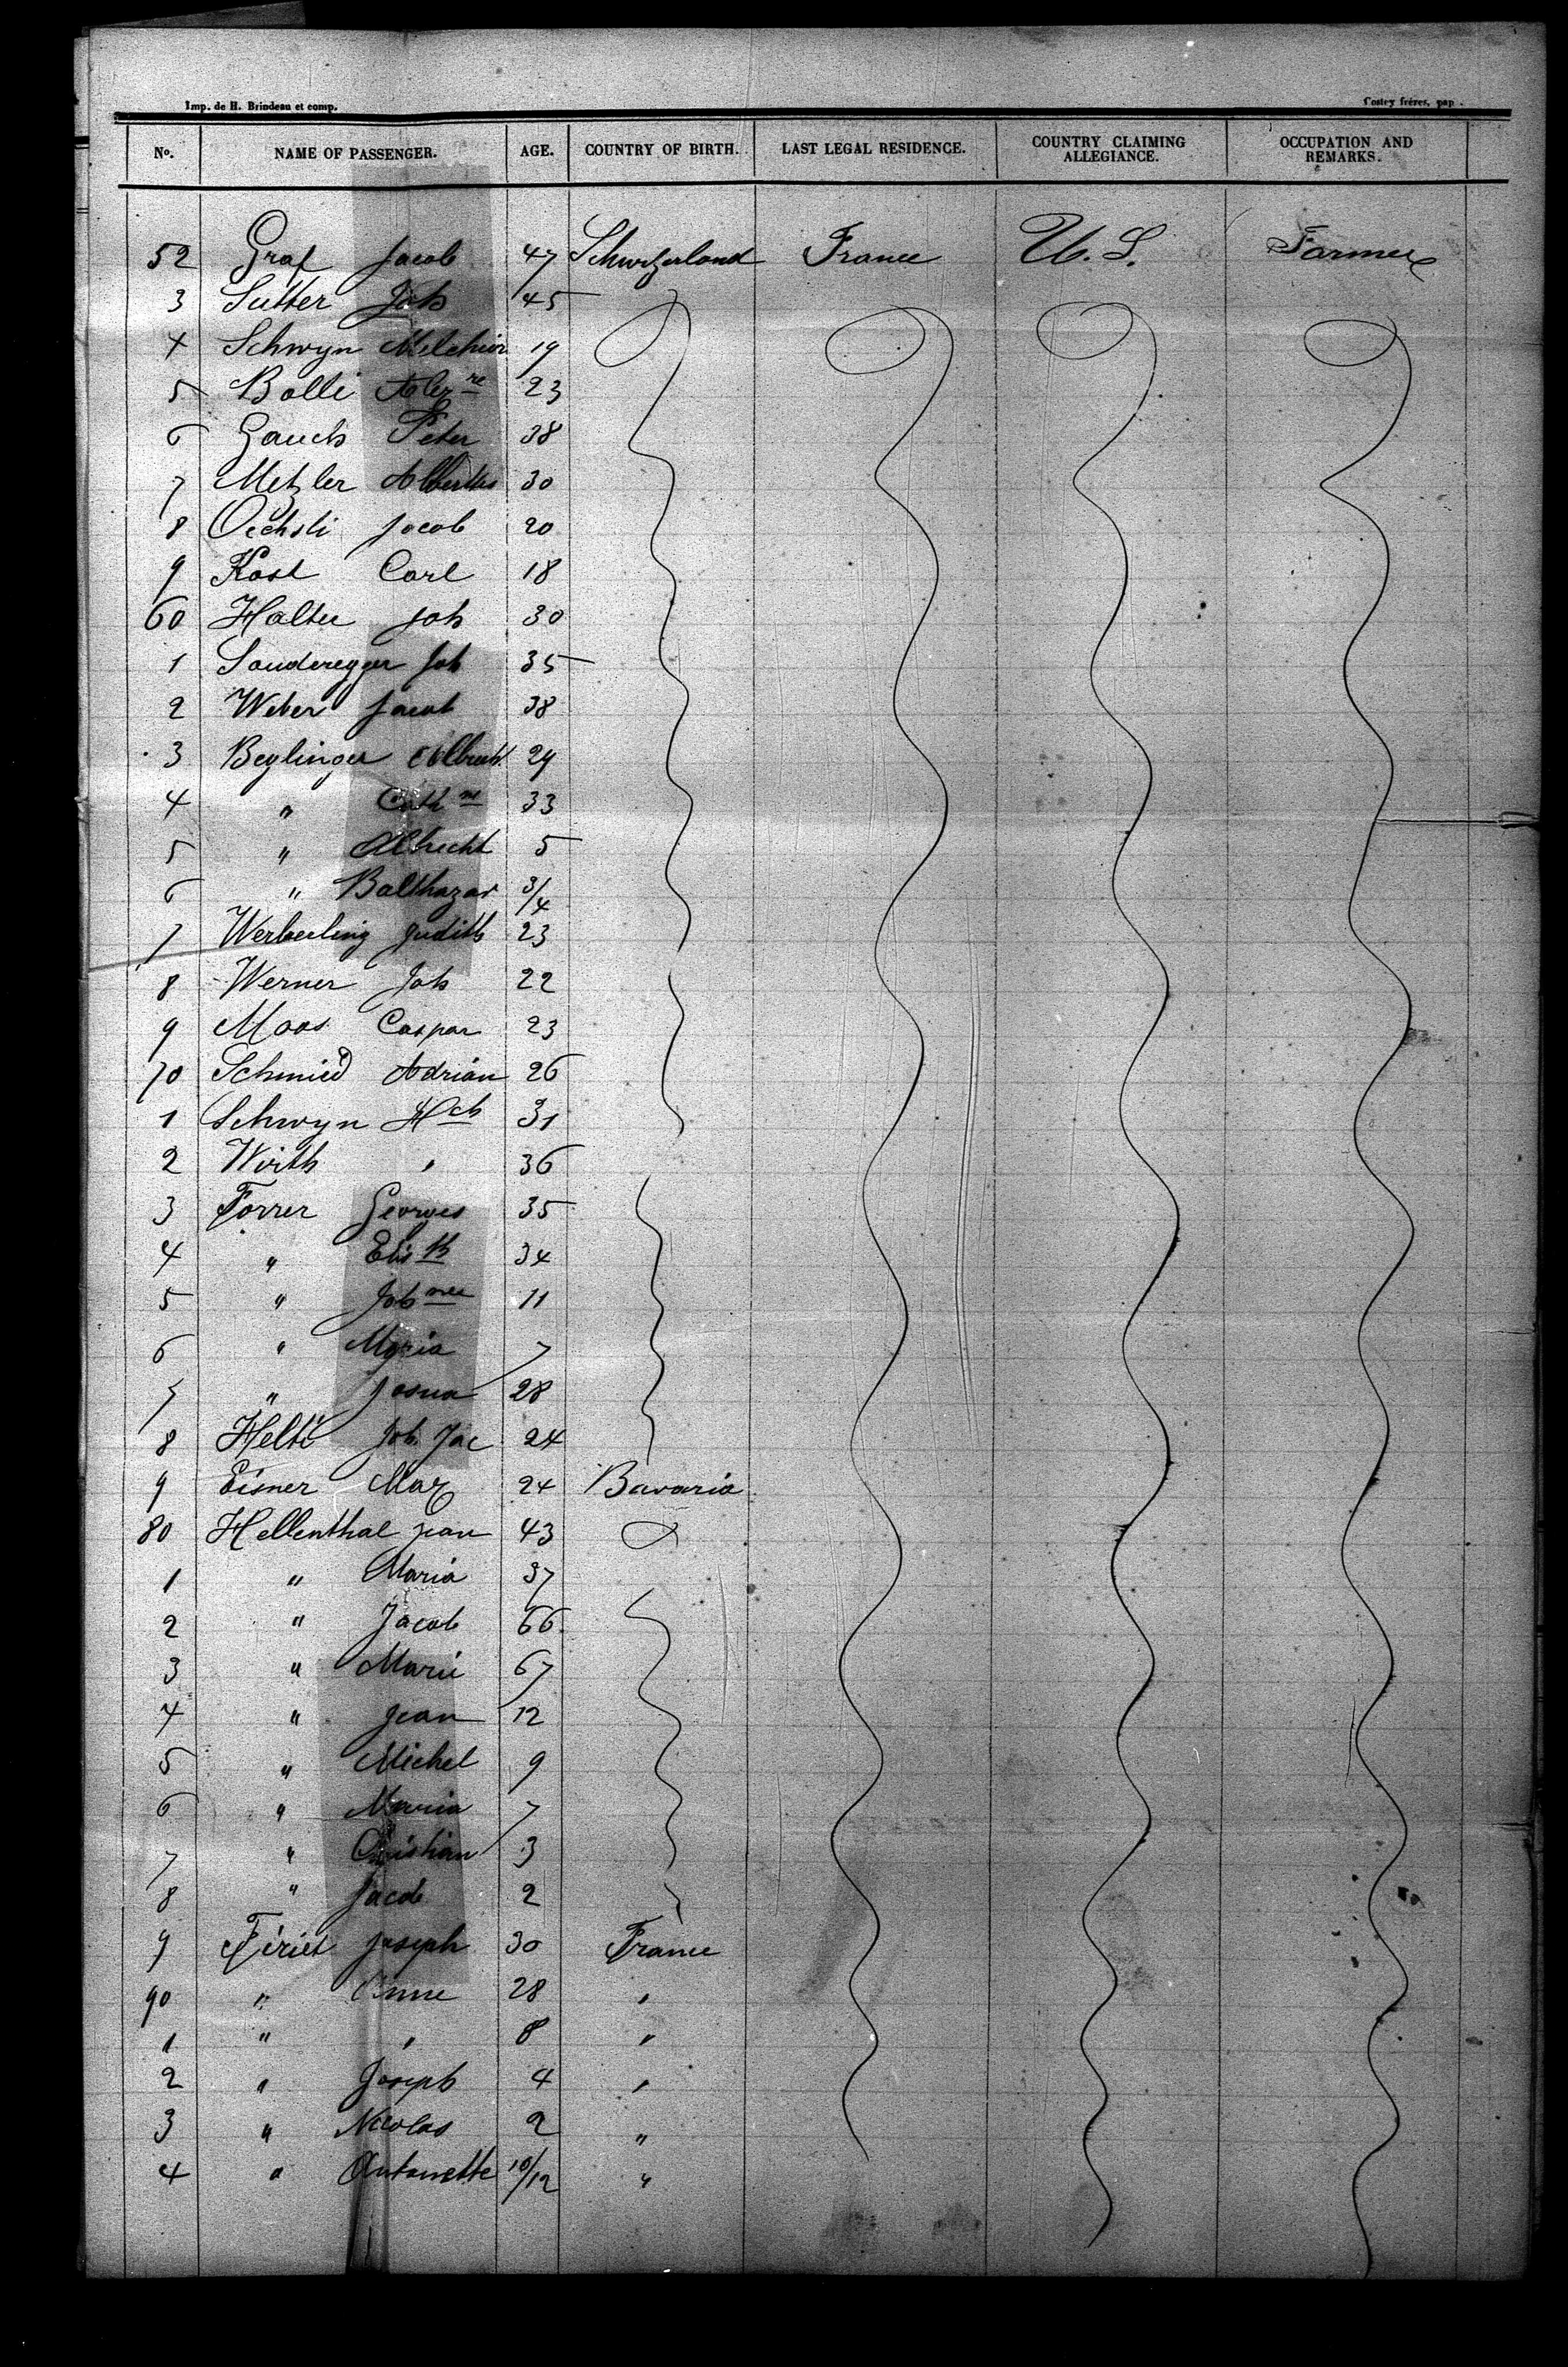 Imp. de H. Brindeau et comp. Costey frères, pap.
No. NAME OF PASSENGER. AGE. COUNTRY OF BIRTH. LAST LEGAL RESIDENCE. COUNTRY CLAIMING ALLEGIANCE. OCCUPATION AND REMARKS.
52 Graf Jacob 47 Schwitzerland France U.S. Farmer
3 Sutter Joh 45
4 Schwyn Melchior 19
5 Bolli Alexre 23
6 Gauch Peter 38
7 Metzler 30
8 Oechsli Jacob 20
9 Kast Carl 18
60 Halter Joh 30
1 Sonderegger Joh 35
2 Weber Jacob 38
3 Beglinger Albrecht 29
4 " Cathne 33
5 " Albrecht 5
6 " Balthazar 3/4
7 Judith 23
8 Werner Joh 22
9 Moos Caspar 23
70 Schmied Adrian 26
1 Schwyn Hch 31
2 Wirth " 36
3 Forrer Georges 35
4 " Elisth 34
5 " 11
6 " Maria 7
7 " Josua 28
8 Helti Joh. Jac 24
9 Eisner Max 24 Bavaria
80 Hellenthal Jean 43
1 " Maria 37
2 " Jacob 66
3 " Marie 67
4 " Jean 12
5 " Michel 9
6 " Maria 7
7 " Christian 3
8 " Jacob 2
9 Fériet Joseph 30 France
90 " Anne 28 "
1 " " 8 "
2 " Joseph 4 "
3 " Nicolas 2 "
4 " Antoinette 10/12 "